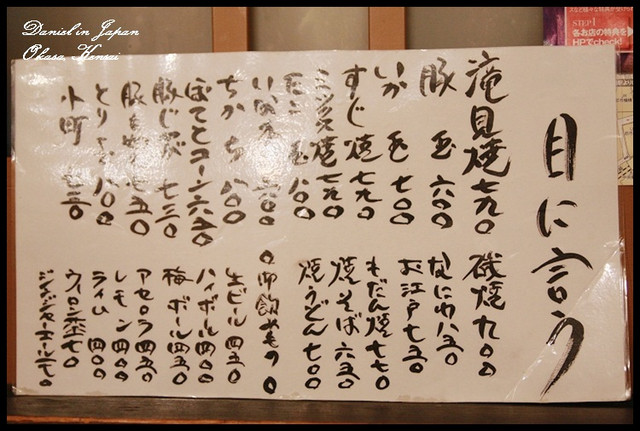 Daniel in Japan
Okasa, Kansai
STEP1
各お店の特典を
HPでcheck!
目に言う
滝見焼 七九〇
豚玉 六〇〇
いか玉 七〇〇
すじ焼 七九〇
ミックス焼 七九〇
たこ玉 八〇〇
ちかち 八〇〇
ぽてとコーン 六五〇
とり玉 八〇〇
小町 七三〇
磯焼 九〇〇
なにわ 八五〇
お江戸 七五〇
もだん焼 七七〇
焼そば 六五〇
焼うどん 七〇〇
〇御飲みもの〇
生ビール 四五〇
ハイボール 四〇〇
梅ボール 四五〇
アセロラ 四五〇
レモン 四〇〇
ライム 四〇〇
ウーロン茶 二七〇
ジンジャーエール 二七〇